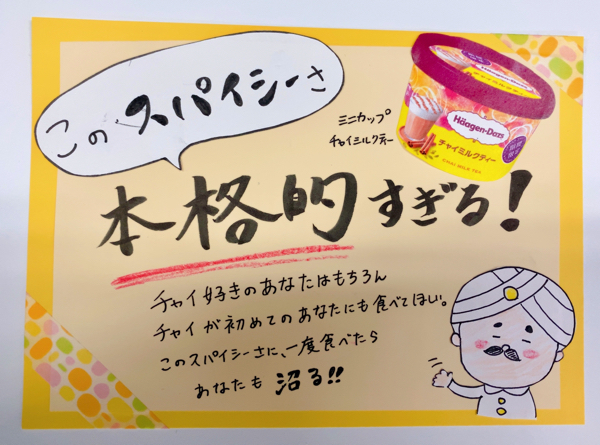 このスパイシーさ
ミニカップ
チャイミルクティー
Häagen-Dazs
チャイミルクティー
CHAI MILK TEA
本格的すぎる!
チャイ好きのあなたはもちろん
チャイが初めてのあなたにも食べてほしい。
このスパイシーさに、一度食べたら
あなたも沼る!!